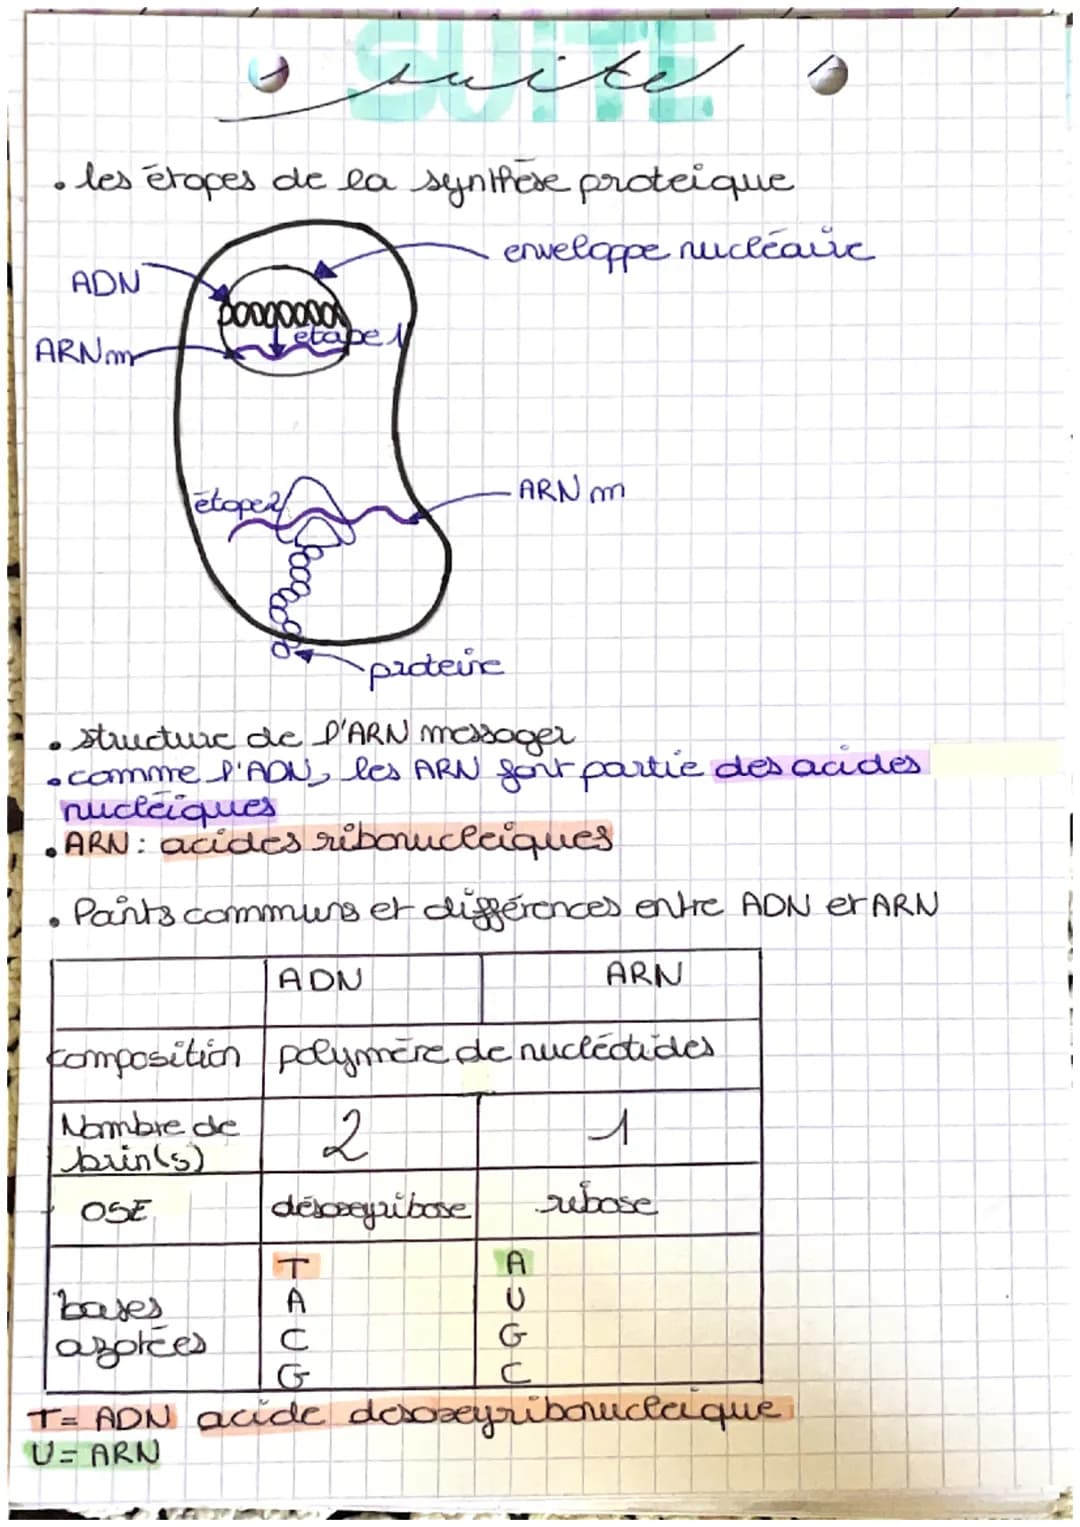 SUITE
suite
• les étapes de la synthèse proteique
enveloppe nucléaire
ADN
étape 1
ARN m
étape 2
ARN m
proteine
• structure de l'ARN messager
• comme l'ADN, les ARN font partie des acides
nucléiques
• ARN : acides ribonucleiques
• Points communs et différences entre ADN et ARN
ADN ARN
composition polymère de nucléotides
Nombre de 2 1
brin(s)
OSE désoxyribose ribose
T A
bases A U
azotées C G
G C
T = ADN acide desoxyribonucleique
U = ARN